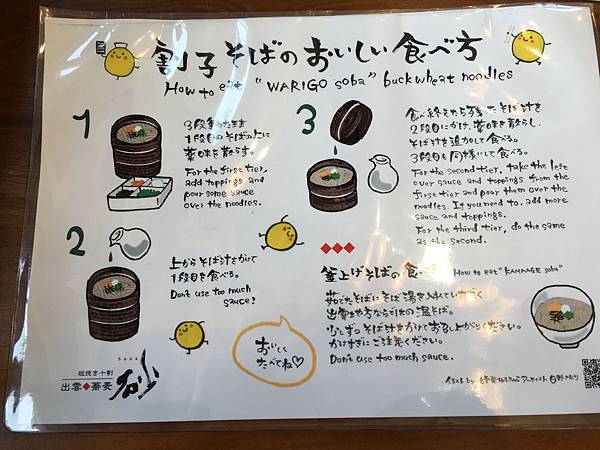 割子そばのおいしい食べ方
How to eat "WARIGO soba" buckwheat noodles
1
3段重ねたまま
1段目のそばの上に
薬味を散らす。
For the first tier,
add toppings and
pour some sauce
over the noodles.
2
上からそば汁をかけて
1段目を食べる。
Don't use too much
sauce!
3
食べ終えたら残ったそば汁を
2段目にかけ、薬味を散らし、
そば汁を追加して食べる。
3段目も同様にして食べる。
For the second tier, take the left
over sauce and toppings from the
first tier and pour them over the
noodles. If you need to, add more
sauce and toppings.
For the third tier, do the same
as the second.
釜上げそばの食べ
How to eat "KAMAAGE soba"
茹でたそばにそば湯を入れていただく
出雲地方ならではの温そば。
少しずつそば汁をかけてお召し上がりください。
かけすぎにご注意ください。
Don't use too much sauce.
おいしく
たべてね♡
Soba
粗挽き十割
出雲◆蕎麦
イラスト by